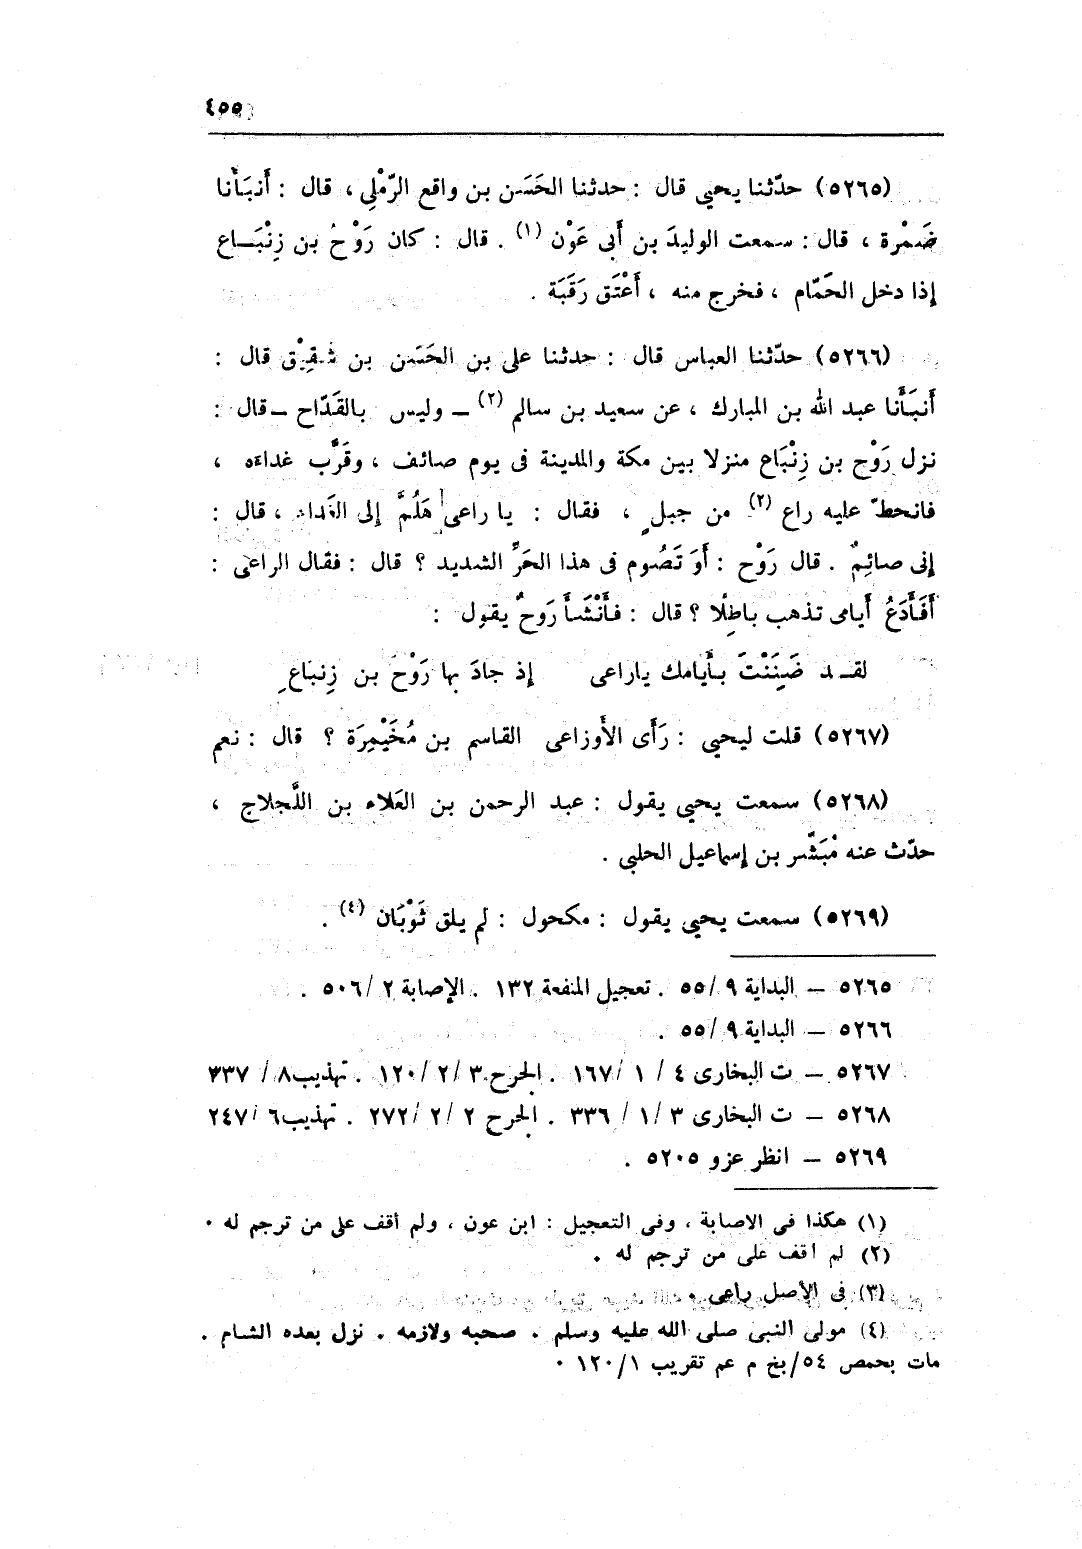 ٤٥٥
(٥٢٦٥) حدّثنا يحيي قال : حدثنا الحَسَن بن واقع الرّمْلِي ، قال : أَنبَأَنا
ضَمْرة ، قال : سمعت الوليدَ بن أَبي عَوْن (١) . قال : كان رَوْحُ بن زِنْبَـاع
إذا دخل الحَمّام ، فخرج منه ، أَعْتَق رَقَبَة .
(٥٢٦٦) حدّثنا العباس قال : حدثنا علي بن الحَسَن بن شَقِيْق قال :
أَنبَأَنا عبد الله بن المبارك ، عن سعيد بن سالم (٢) ــ وليس بالقَدّاح ــ قال :
نزل رَوْح بن زِنْبَاع منزلا بين مكة والمدينة فى يوم صائف ، وقَرَّب غداءه ،
فانحطّ عليه راع (٢) من جبلٍ ، فقال : يا راعى هَلُمَّ إلى الغَداء ، قال :
إنى صائِمٌ . قال رَوْح : أَوَ تَصُوم فى هذا الحَرِّ الشديد ؟ قال : فقال الراعى :
أَفَأَدَعُ أَيامى تذهب باطِلًا ؟ قال : فأَنْشَأَ رَوحٌ يقول :
لقـد ضَنِنْتَ بأَيامك ياراعى إذ جادَ بها رَوْحَ بن زِنبَاعِ
(٥٢٦٧) قلت ليحيي : رَأَى الأَوزاعى القاسم بن مُخَيْمِرَة ؟ قال : نعم
(٥٢٦٨) سمعت يحيي يقول : عبد الرحمن بن العَلاء بن اللَّجلاج ،
حدّث عنه مُبَشّر بن إسماعيل الحلبي .
(٥٢٦٩) سمعت يحيي يقول : مكحول : لم يلق ثَوْبَان (٤) .
٥٢٦٥ ــ البداية ٩ /٥٥ . تعجيل المنفعة ١٣٢ . الإصابة ٢ /٥٠٦ .
٥٢٦٦ ــ البداية ٩ /٥٥ .
٥٢٦٧ ــ ت البخارى ٤ / ١ /١٦٧ . الجرح ٣ /٢ /١٢٠ . تهذيب ٨ / ٣٣٧
٥٢٦٨ ــ ت البخارى ٣ /١ / ٣٣٦ . الجرح ٢ /٢ /٢٧٢ . تهذيب ٦ /٢٤٧
٥٢٦٩ ــ انظر عزو ٥٢٠٥ .
(١) هكذا فى الاصابة ، وفى التعجيل : ابن عون ، ولم أقف على من ترجم له .
(٢) لم اقف على من ترجم له .
(٣) فى الأصل راعى .
(٤) مولى النبى صلى الله عليه وسلم . صحبه ولازمه . نزل بعده الشام .
مات بحمص ٥٤/بخ م عم تقريب ١٢٠/١ .